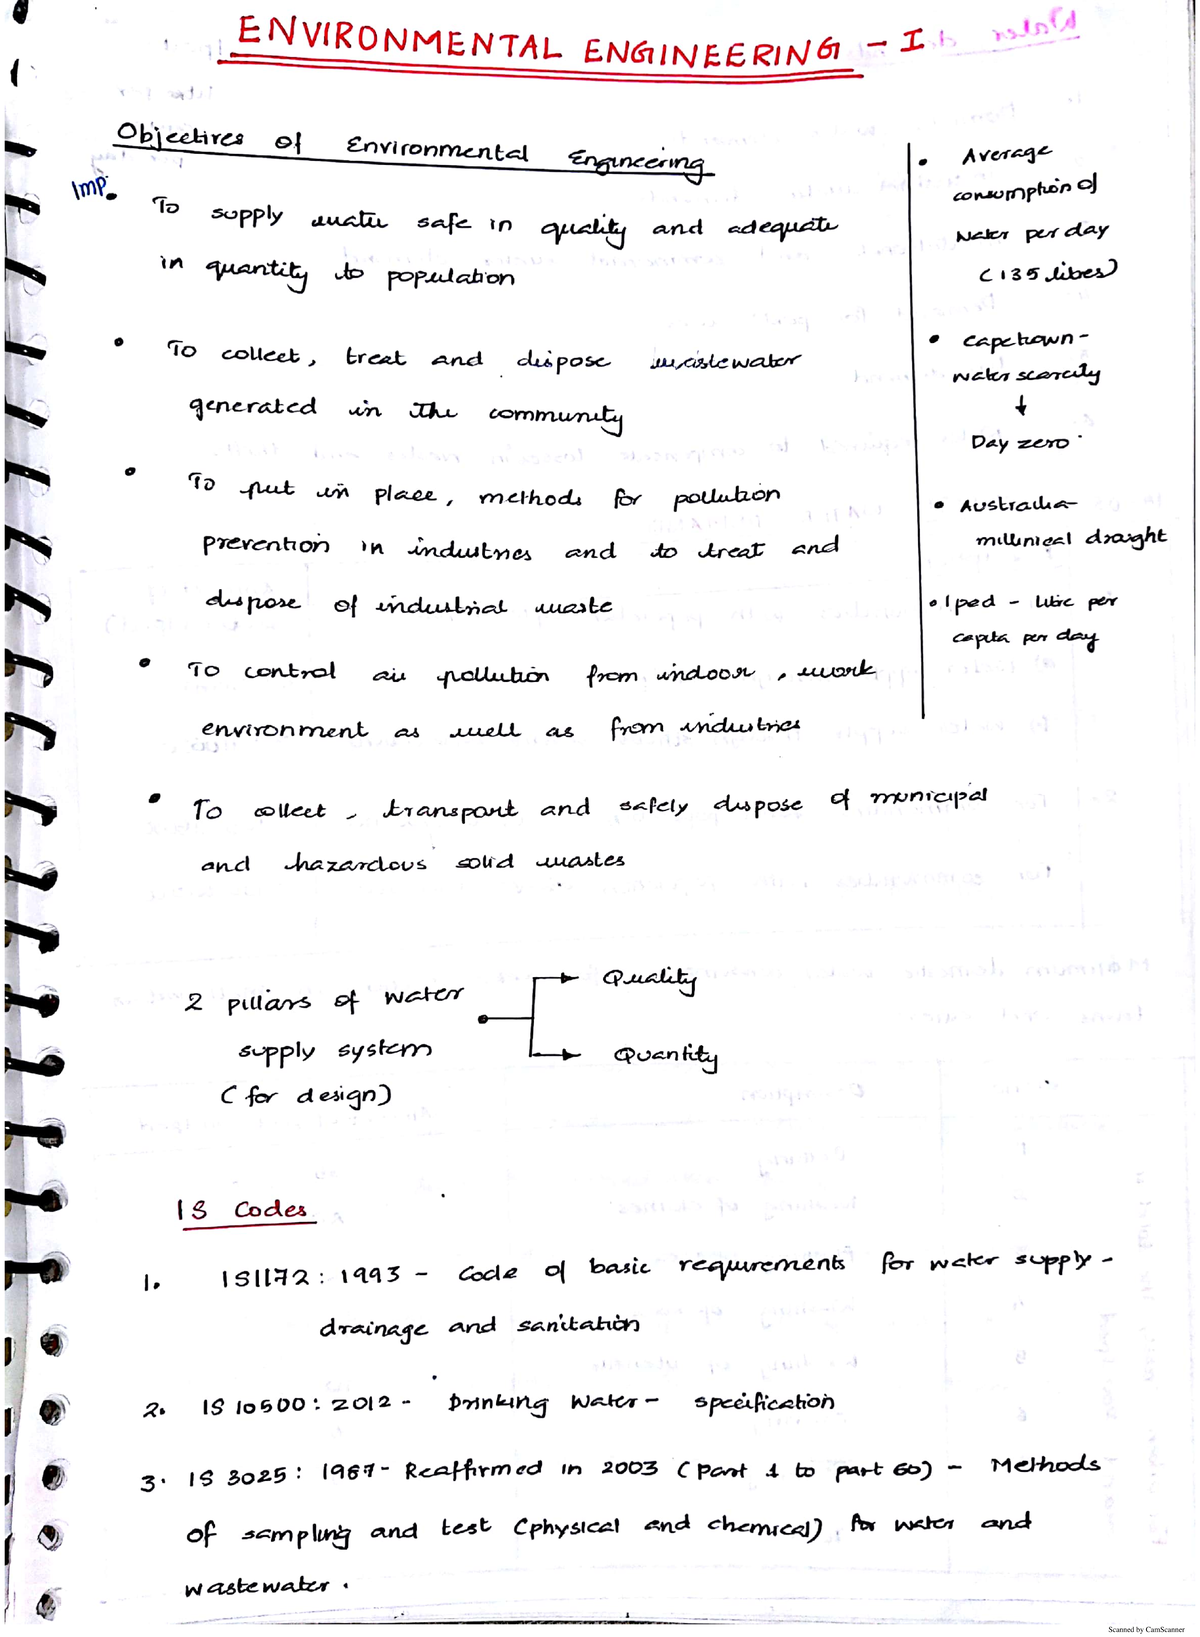 ENVIRONMENTAL ENGINEERING - I
Objectives of Environmental Engineering
Imp.
• To supply water safe in quality and adequate
in quantity to population
• To collect, treat and dispose wastewater
generated in the community
• To put in place, methods for pollution
prevention in industries and to treat and
dispose of industrial waste
• To control air pollution from indoor, work
environment as well as from industries
• To collect, transport and safely dispose of municipal
and hazardous solid wastes
• Average
consumption of
Water per day
(135 litres)
• Capetown -
water scarcity
↓
Day zero
• Australia -
millenieal draught
• lpcd - litre per
capita per day
2 pillars of water
supply system
(for design)
Quality
Quantity
IS Codes
1. IS1172: 1993 - Code of basic requirements for water supply -
drainage and sanitation
2. IS 10500: 2012 - Drinking Water - specification
3. IS 3025: 1987 - Reaffirmed in 2003 (part 1 to part 60) - Methods
of sampling and test (physical and chemical) for water and
wastewater.
Scanned by CamScanner